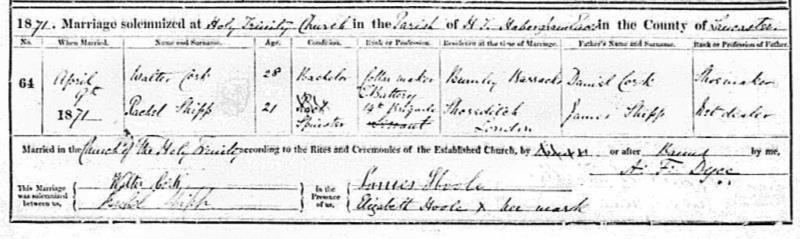 1871. Marriage solemnized at Holy Trinity Church in the Parish of H. T. Habergham Eaves in the County of Lancaster
No. When Married. Name and Surname. Age. Condition. Rank or Profession. Residence at the time of Marriage. Father's Name and Surname. Rank or Profession of Father.
64 April 9th 1871 Walter Cork 28 Bachelor Collar maker C Battery 14th Brigade Burnley Barracks Daniel Cork Shoemaker
Rachel Shipp 21 Spinster Shoreditch London James Shipp dealer
Married in the Church of The Holy Trinity according to the Rites and Ceremonies of the Established Church, by or after Banns by me,
A. F. Dyce
This Marriage was solemnized between us, Walter Cork Rachel Shipp In the Presence of us, James Hoole
Elizabeth Hoole x her mark